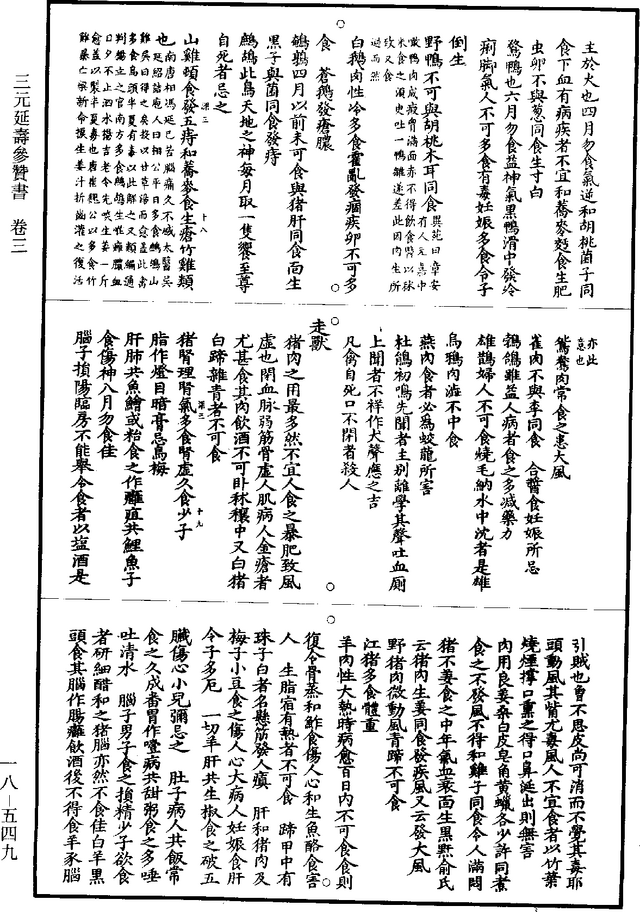 三元延壽參贊書　卷三
主於火也四月勿食氣逆和胡桃菌子同
食下血有病疾者不宜和蕎麥麪食生肥
虫卵不與葱同食生寸白
鶩鴨也六月勿食益神氣黑鴨滑中發冷
痢脚氣人不可多食有毒妊娠多食令子
倒生
野鴨不可與胡桃木耳同食
白鵝肉性冷多食霍亂發痼疾卵不可多
食　蒼鵝發瘡膿
鵪鶉四月以前未可食與猪肝同食面生
黑子與菌同食發痔
鷓鴣此鳥天地之神每月取一隻饗至尊
自死者忌之
山雞頻食發五痔和蕎麥食生瘡竹雞類
也
亦此意也
鴛鴦肉常食之患大風
雀肉不與李同食　合醬食妊娠所忌
鵓鴿雖益人病者食之多減藥力
雄鵲婦人不可食燒毛納水中沈者是雄
烏鴉肉澁不中食
燕肉食者必為蛟龍所害
杜鵑初鳴先聞者主别離學其聲吐血厠
上聞者不祥作犬聲應之吉
凡禽自死口不閉者殺人
走獸
猪肉之用最多然不宜人食之暴肥致風
虚也閉血脉弱筋骨虚人肌病人金瘡者
尤甚食其肉飲酒不可卧秫穰中又白猪
白蹄雜青者不可食
猪腎理腎氣多食腎虚久食少子
脂作燈目暗膏忌烏梅
肝肺共魚鱠或粭食之作癰疽共鯉魚子
食傷神八月勿食佳
腦子損陽臨房不能舉令食者以塩酒是
引賊也曾不思皮尚可消而不覺其毒耶
頭動風其觜尤毒風人不宜食者以竹葉
燒煙撑口熏之得口鼻涎出則無害
肉用良姜桑白皮皂角黄蠟各少許同煮
食之不發風不得和雞子同食令人滿悶
猪不姜食之中年氣血衰面生黑㸃俞氏
云猪肉生姜同食發疾風又云發大風
野猪肉微動風青蹄不可食
江猪多食體重
羊肉性大熱時病愈百日内不可食食則
復令骨蒸和鮓食傷人心和生魚酪食害
人　生脂宿有熱者不可食　蹄甲中有
珠子白者名懸筋發人癲　肝和猪肉及
梅子小豆食之傷人心大病人妊娠食肝
令子多厄　一切羊肝共生椒食之破五
臟傷心小兒彌忌之　肚子病人共飯常
食之久成番胃作噎病共甜粥食之多唾
吐清水　腦子男子食之損精少子欲食
者研細醋和之猪腦亦然不食佳白羊黑
頭食其腦作腸癰飲酒後不得食羊豕腦
一八—五四九